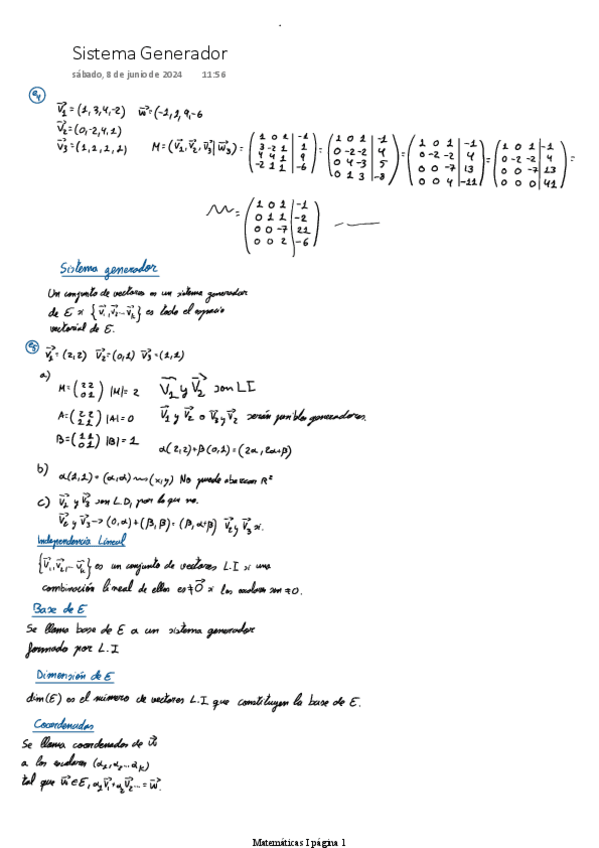 Sistema Generador
sábado, 8 de junio de 2024 11:56
e4
v⃗1 = (1,3,4,-2) w⃗ = (-1,1,9,-6
v⃗2 = (0,-2,4,1)
v⃗3 = (1,1,1,1) M = (v⃗1, v⃗2, v⃗3 | w⃗3) =
1 0 1 | -1
3 -2 1 | 1
4 4 1 | 9
-2 1 1 | -6
=
1 0 1 | -1
0 -2 -2 | 4
0 4 -3 | 5
0 1 3 | -8
=
1 0 1 | -1
0 -2 -2 | 4
0 0 -7 | 13
0 0 4 | -11
=
1 0 1 | -1
0 -2 -2 | 4
0 0 -7 | 13
0 0 0 | 41
=
=
1 0 1 | -1
0 1 1 | -2
0 0 -7 | 21
0 0 2 | -6
Sistema generador
Un conjunto de vectores es un sistema generador
de E si {v⃗1, v⃗2 ... v⃗k} es todo el espacio
vectorial de E.
e5 v⃗1 = (2,2) v⃗2 = (0,1) v⃗3 = (1,1)
a)
M = (2 2 / 0 1) |M| = 2 v⃗1 y v⃗2 son LI
A = (2 2 / 1 1) |A| = 0 v⃗1 y v⃗2 o v⃗3 y v⃗2 serán posibles generadores.
B = (1 1 / 0 1) |B| = 1 α(2,2)+β(0,1) = (2α, 2α+β)
b) α(1,1) = (α,α) (x,y) No puede abarcar R²
c) v⃗1 y v⃗3 son L.D, por lo que no.
v⃗2 y v⃗3 → (0,α)+(β,β) = (β, α+β) v⃗2 y v⃗3 si.
Independencia Lineal
{v⃗1, v⃗2, ... v⃗k} es un conjunto de vectores L.I si una
combinación lineal de ellos es ≠ 0⃗ si los escalares son ≠ 0.
Base de E
Se llama base de E a un sistema generador
formado por L.I
Dimensión de E
dim(E) es el número de vectores L.I que constituyen la base de E.
Coordenadas
Se llama coordenadas de
a los escalares (α1, α2 ... αk)
tal que w⃗ ∈ E, α1v⃗1+α2v⃗2... = w⃗.
Matemáticas I página 1